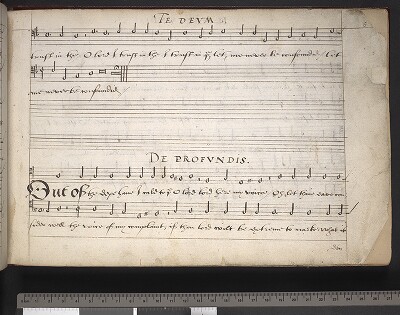 TE DEVM
trust in the O lord I trust in the I trust in yͤ let me never be confounded Let
me never be confounded
DE PROFVNDIS.
Out of the depe have I called to yͤ O lord lord here my voice. Oh let thine eares con
sider well the voice of my complaint, if thou lord wilt be extreme to marke what is